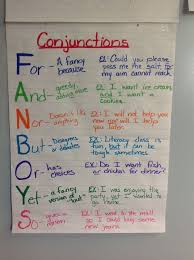 Conjunctions
For - A fancy because. EX: Could you please pass me the salt for my aim cannot reach.
And - greedy, adding more EX: I want ice cream, and I want a cookies.
Nor - anything EX: I will not help you now nor will I help you later.
But - Disagrees or doubts EX: Literacy class is fun, but it can be tough sometimes.
Or - has choices EX: Do I want fish, or chicken for dinner?
Yet - a fancy version of "but" EX: I was enjoying the party, yet I wanted to go home.
So - EX: I went to the mall so I could buy some new